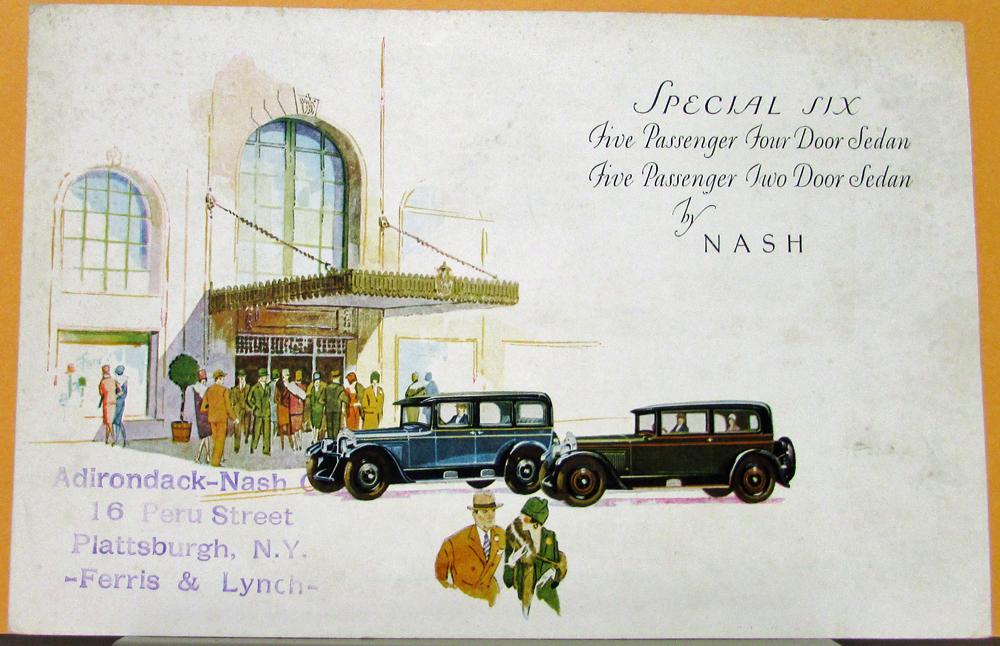 SPECIAL SIX
Five Passenger Four Door Sedan
Five Passenger Two Door Sedan
by
NASH
Adirondack-Nash C
16 Peru Street
Plattsburgh, N.Y.
-Ferris & Lynch-